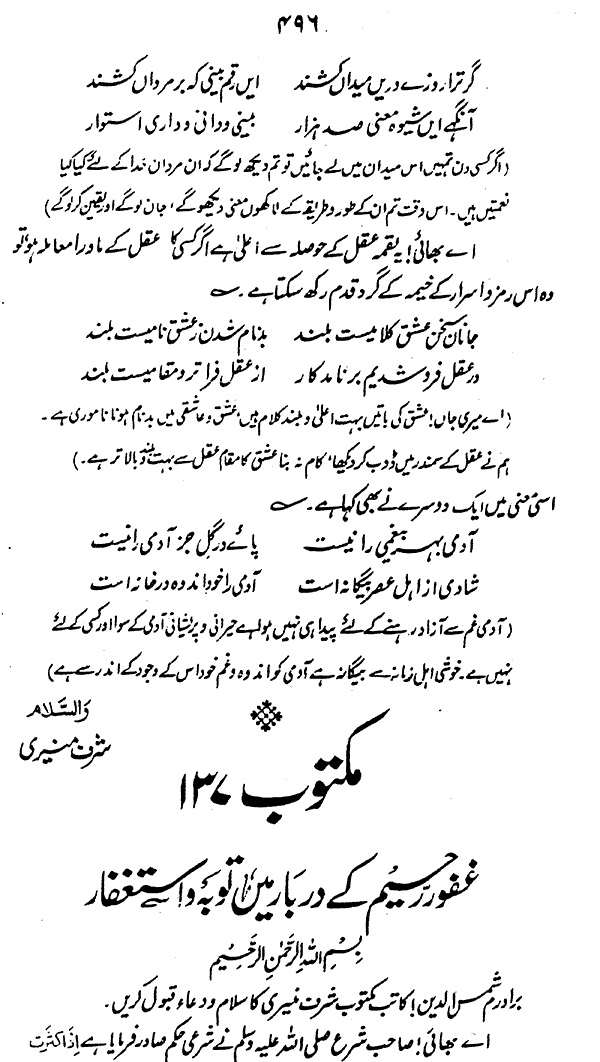 ۴۹۶
گر ترا روزے دریں میداں کشند ایں رقم بینی کہ بر مرداں کشند
آنگہے ایں شیوہ معنی صد ہزار بینی و دانی و داری استوار
(اگر کسی دن تمہیں اس میدان میں لے جائیں تو تم دیکھ لوگے کہ ان مردان خدا کے لئے کیا کیا
نعمتیں ہیں۔ اس وقت تم ان کے طور و طریقہ کے لاکھوں معنی دیکھو گے، جان لوگے اور یقین کر لوگے)
اے بھائی! یہ لقمہ عقل کے حوصلہ سے اعلیٰ ہے اگر کسی کا عقل کے ماورا معاملہ ہو تو
وہ اس رمز و اسرار کے خیمہ کے گرد قدم رکھ سکتا ہے۔
جاناں سخن عشق کلامیست بلند بدنام شدن ز عشق نامیست بلند
در عقل فرو شدیم بر نامد کار از عقل فراتر و مقامیست بلند
(اے میری جاں! عشق کی باتیں بہت اعلیٰ و بلند کلام ہیں، عشق و عاشقی میں بدنام ہونا ناموری ہے۔
ہم نے عقل کے سمندر میں ڈوب کر دیکھا، کام نہ بنا عشق کا مقام عقل سے بہت بلند و بالاتر ہے۔)
اسی معنی میں ایک دوسرے نے بھی کہا ہے۔
آدمی بہر بے غمی را نیست پائے در گل جز آدمی را نیست
شادی از اہل عصر بیگانہ است آدمی را خود اندوہ در خانہ است
(آدمی غم سے آزاد رہنے کے لئے پیدا ہی نہیں ہوا ہے حیرانی و پریشانی آدمی کے سوا اور کسی کے لئے
نہیں ہے۔ خوشی اہل زمانہ سے بیگانہ ہے آدمی کو اندوہ و غم خود اس کے وجود کے اندر سے ہے)
والسَّلام
شرف منیری
مکتوب ۱۳۷
غفور رحیم کے دربار میں توبہ و استغفار
بِسْمِ اللهِ الرَّحْمٰنِ الرَّحِیْمِ
برادرم شمس الدین! کاتب مکتوب شرف منیری کا سلام و دعاء قبول کریں۔
اے بھائی! صاحب شرع صلی اللہ علیہ وسلم نے شرعی حکم صادر فرمایا ہے اِذَا کَثُرَتْ